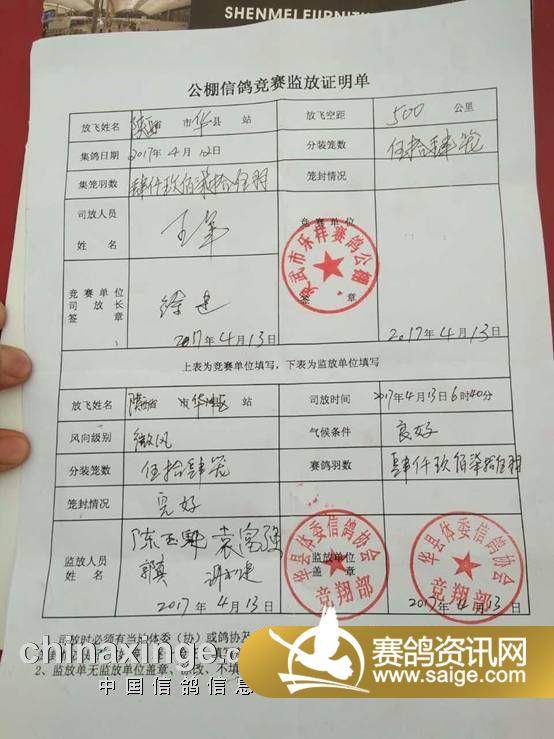 SHENMEI FURNIT
公棚信鸽竞赛监放证明单
放飞姓名 陕西 市 华 县 站 放飞空距 500 公里
集鸽日期 2017年4月12日 分装笼数 伍拾肆笼
集笼羽数 肆仟玖佰柒拾伍羽 笼封情况
司放人员 竞赛单位
姓名 王军 签章
武市乐祥赛鸽公棚
竞赛单位
司放长 徐建
签章
2017年4月13日 2017年4月13日
上表为竞赛单位填写,下表为监放单位填写
放飞姓名 陕西 市 华 站 司放时间 2017年4月13日6时40分
风向级别 微风 气候条件 良好
分装笼数 伍拾肆笼 赛鸽羽数 肆仟玖佰柒拾伍羽
笼封情况 完好
监放人员 袁富强 监放单位
姓名 盖章
华县体委信鸽协会
竞翔部
华县体委信鸽协会
竞翔部
2017年4月13日 2017年4月13日
司放时必须有当地体委(协)或鸽协
2、监放单无监放单位盖章、涂改、不填
chinaxinge.com
中国信鸽信息
赛鸽资讯网
www.saige.com